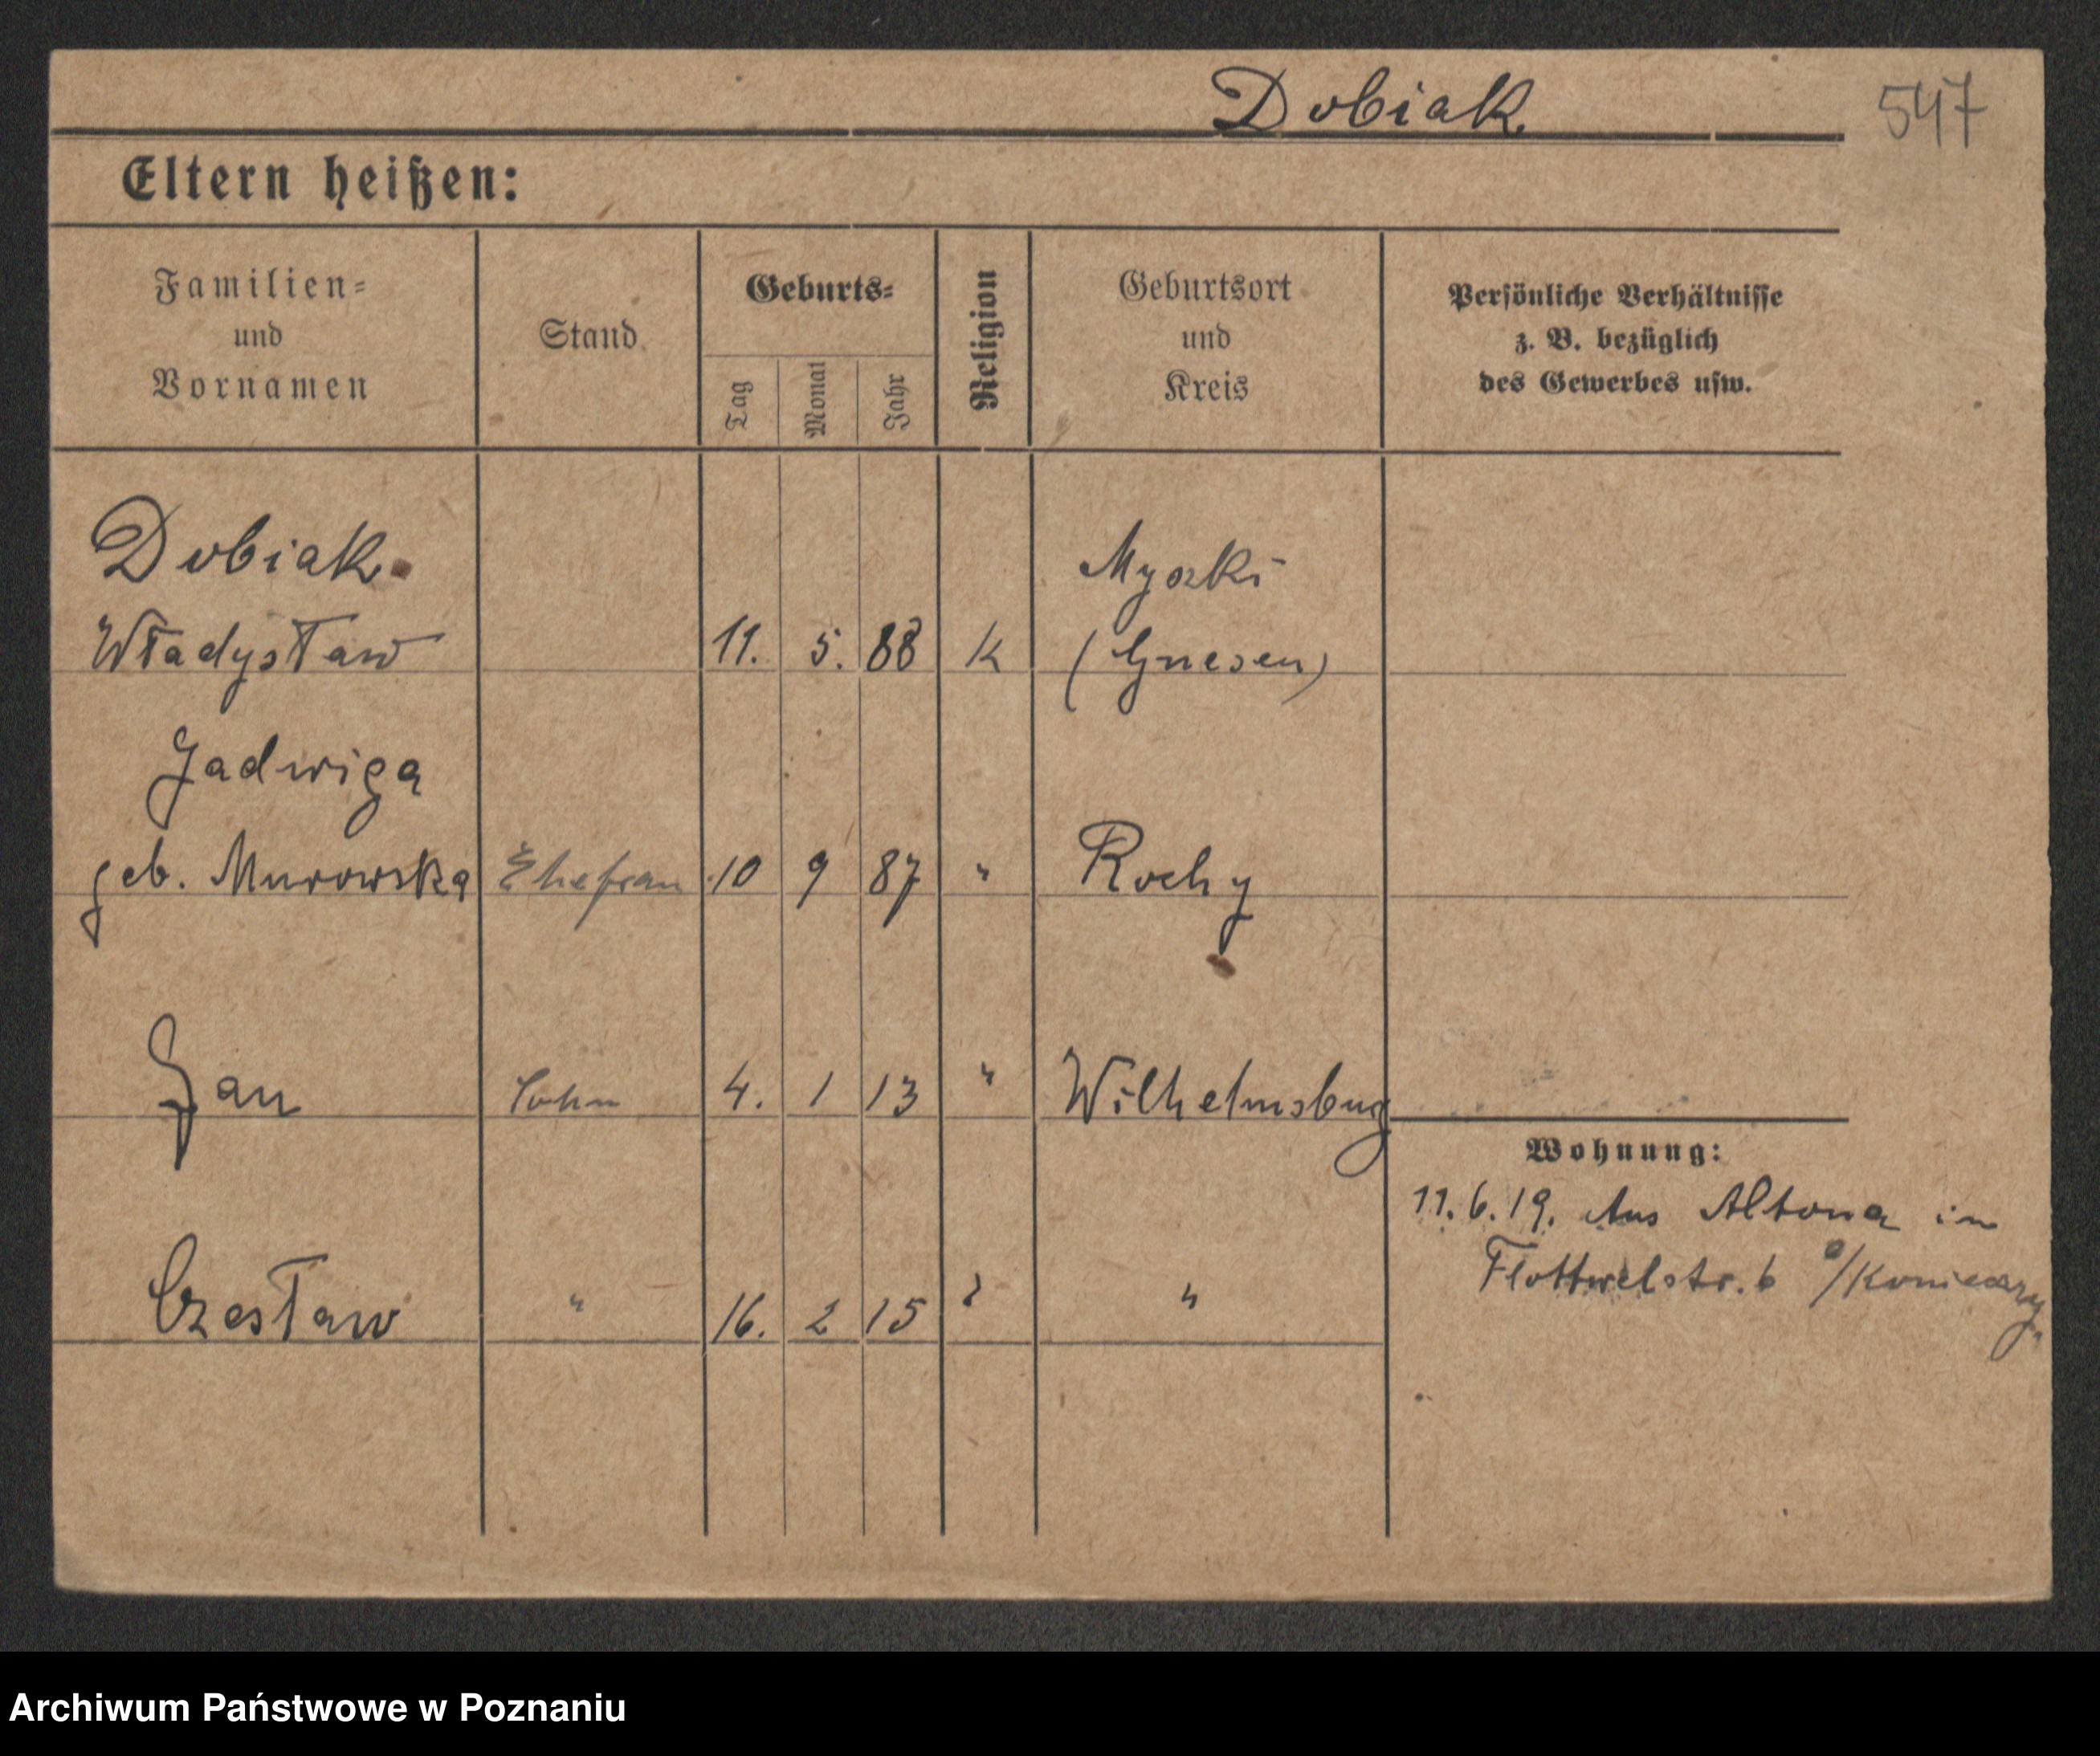 Dobiak
547
Eltern heißen:
Familien=
und
Vornamen
Stand
Geburts=
Tag
Monat
Jahr
Religion
Geburtsort
und
Kreis
Persönliche Verhältnisse
z. B. bezüglich
des Gewerbes usw.
Dobiak
Myszki
Władysław 11. 5. 88 K (Gnesen)
Jadwiga
geb. Murowska Ehefrau 10 9 87 " Rochy
Jan Sohn 4. 1 13 " Wilhelmsburg
Wohnung:
11.6.19. Aus Altona in
Flottwelstr. 6 b/Konieczny.
Czesław " 16. 2 15 " "
Archiwum Państwowe w Poznaniu